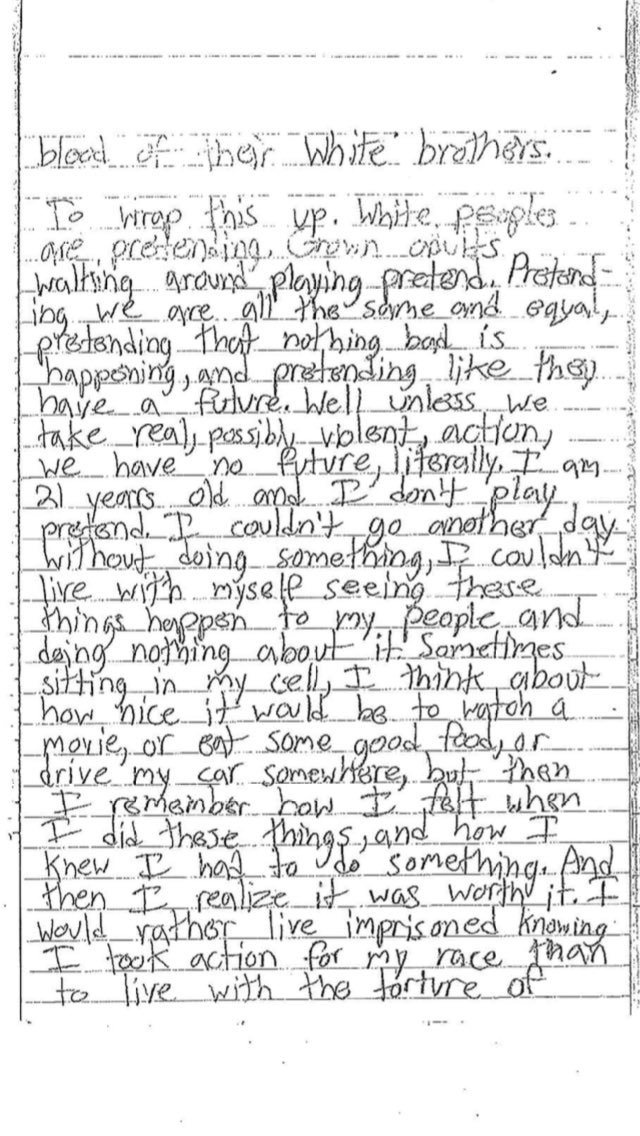 blood of their White brothers.
To wrap this up. White peoples
are pretending. Grown adults
walking around playing pretend. Pretend-
ing we are all the same and equal,
pretending that nothing bad is
happening, and pretending like they
have a future. Well unless we
take real, possibly violent, action,
we have no future, literally. I am
21 years old and I don't play
pretend. I couldn't go another day
without doing something, I couldn't
live with myself seeing these
things happen to my people and
doing nothing about it. Sometimes
sitting in my cell, I think about
how nice it would be to watch a
movie, or eat some good food, or
drive my car somewhere, but then
I remember how I felt when
I did these things, and how I
knew I had to do something. And
then I realize it was worth it. I
would rather live imprisoned knowing
I took action for my race than
to live with the torture of